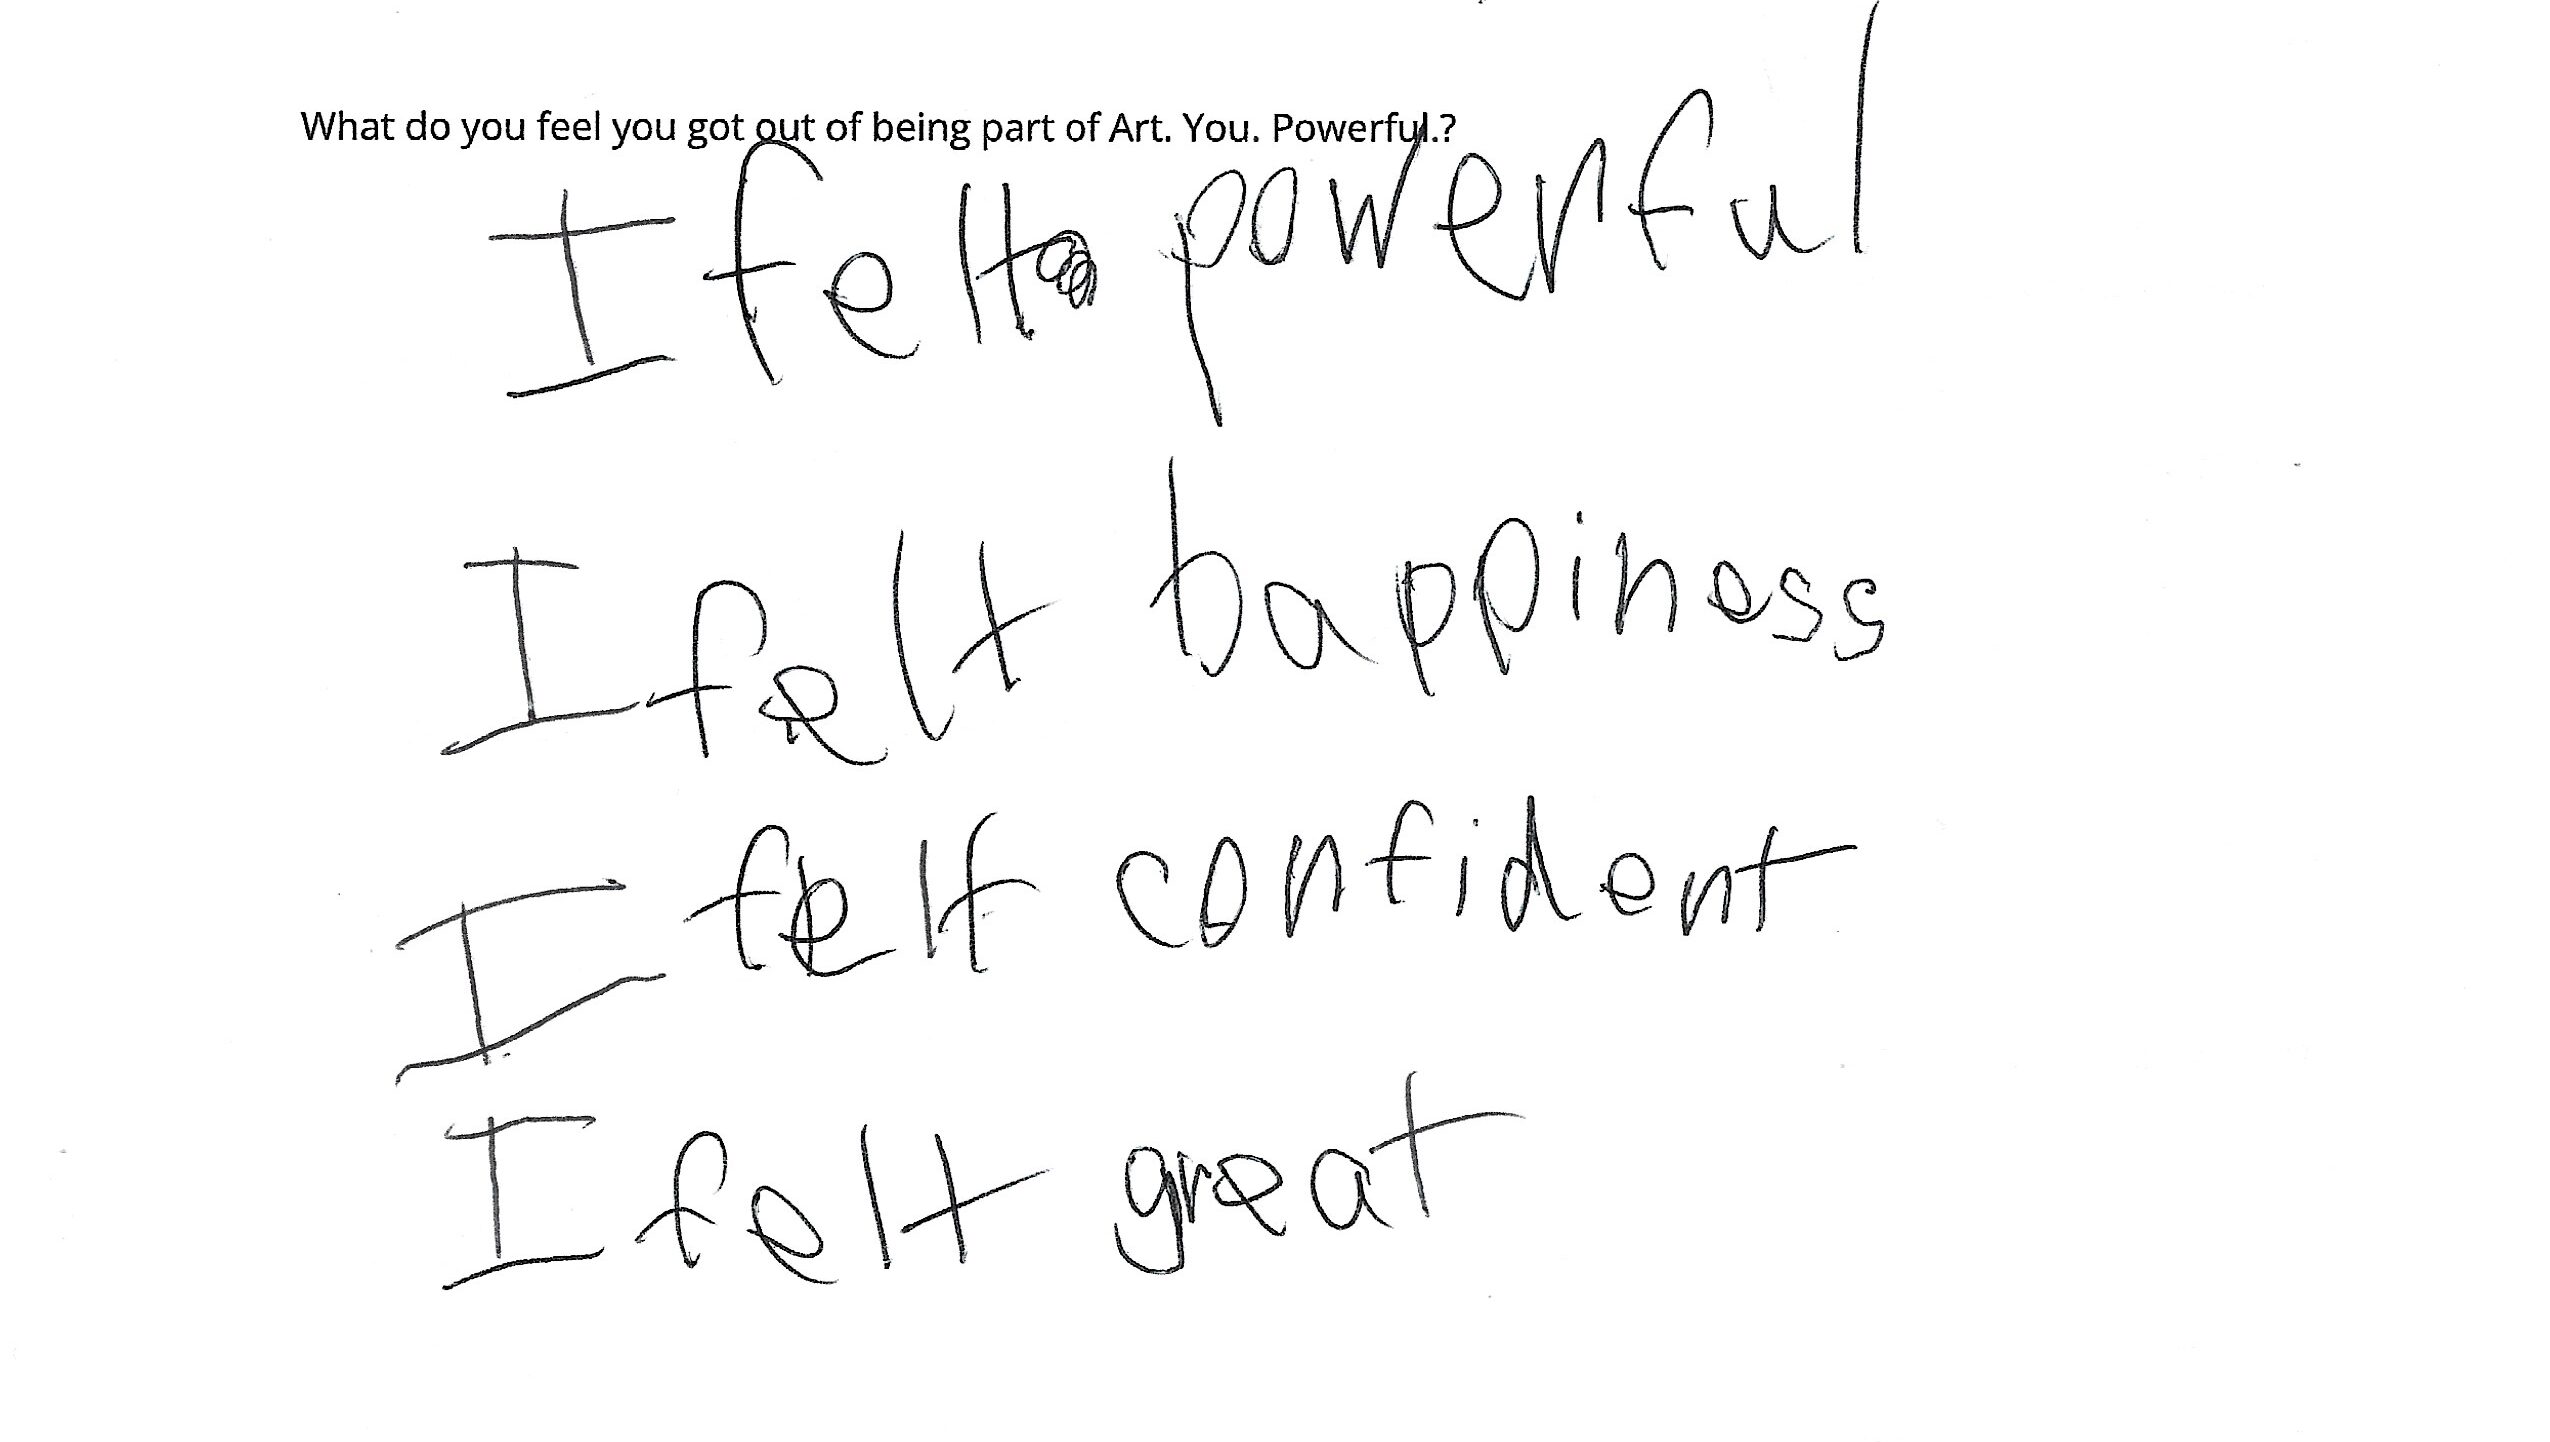 What do you feel you got out of being part of Art. You. Powerful.?
I felt powerful
I felt happiness
I felt confident
I felt great